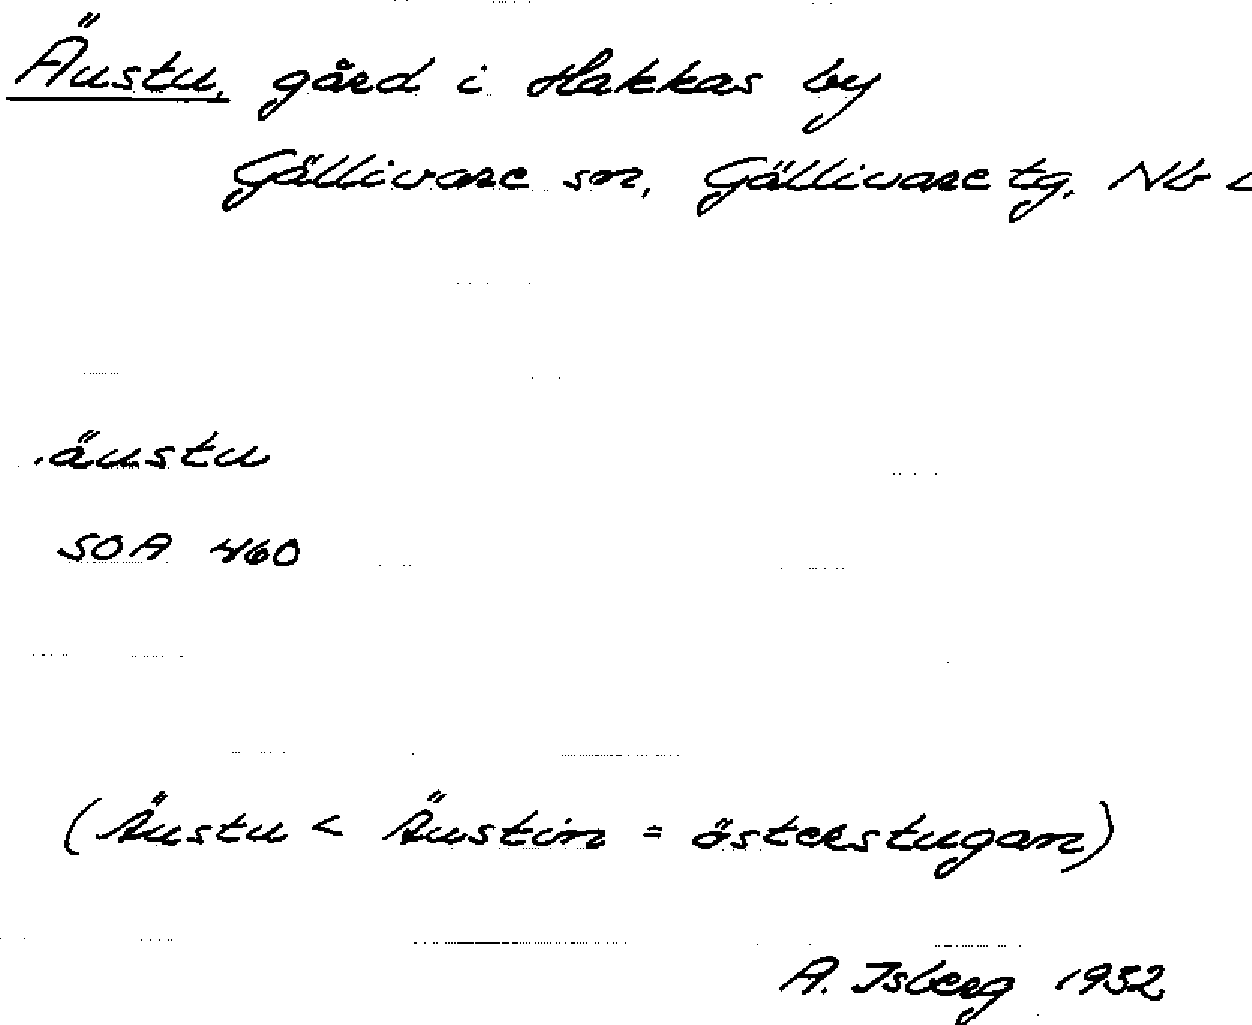 Äustu, gård i Hakkas by
Gällivare sn, Gällivare tg. Nb
.äustu
SOA 460
(Äustu < Äustin = österstugan)
A. Isberg 1932